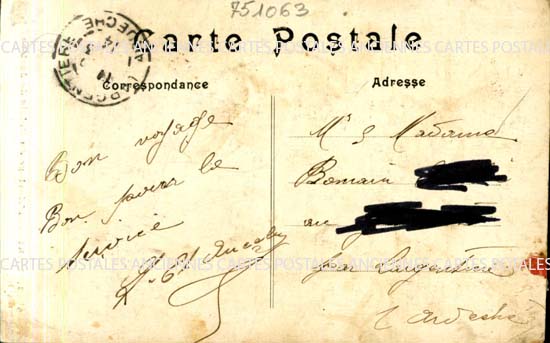 751063
Carte Postale
ARGENTIERE
ARDECHE
CARTES POSTALES ANCIENNES CARTES POSTALES ANCIENNES CARTES POSTALES
Correspondance
Bon voyage
Bon pour le
service
Adresse
Mr & Madame
Romain
au
par Largentière
L'Ardèche
CARTES POSTALES ANCIENNES CARTES POSTALES ANCIENNES CARTES POSTALES